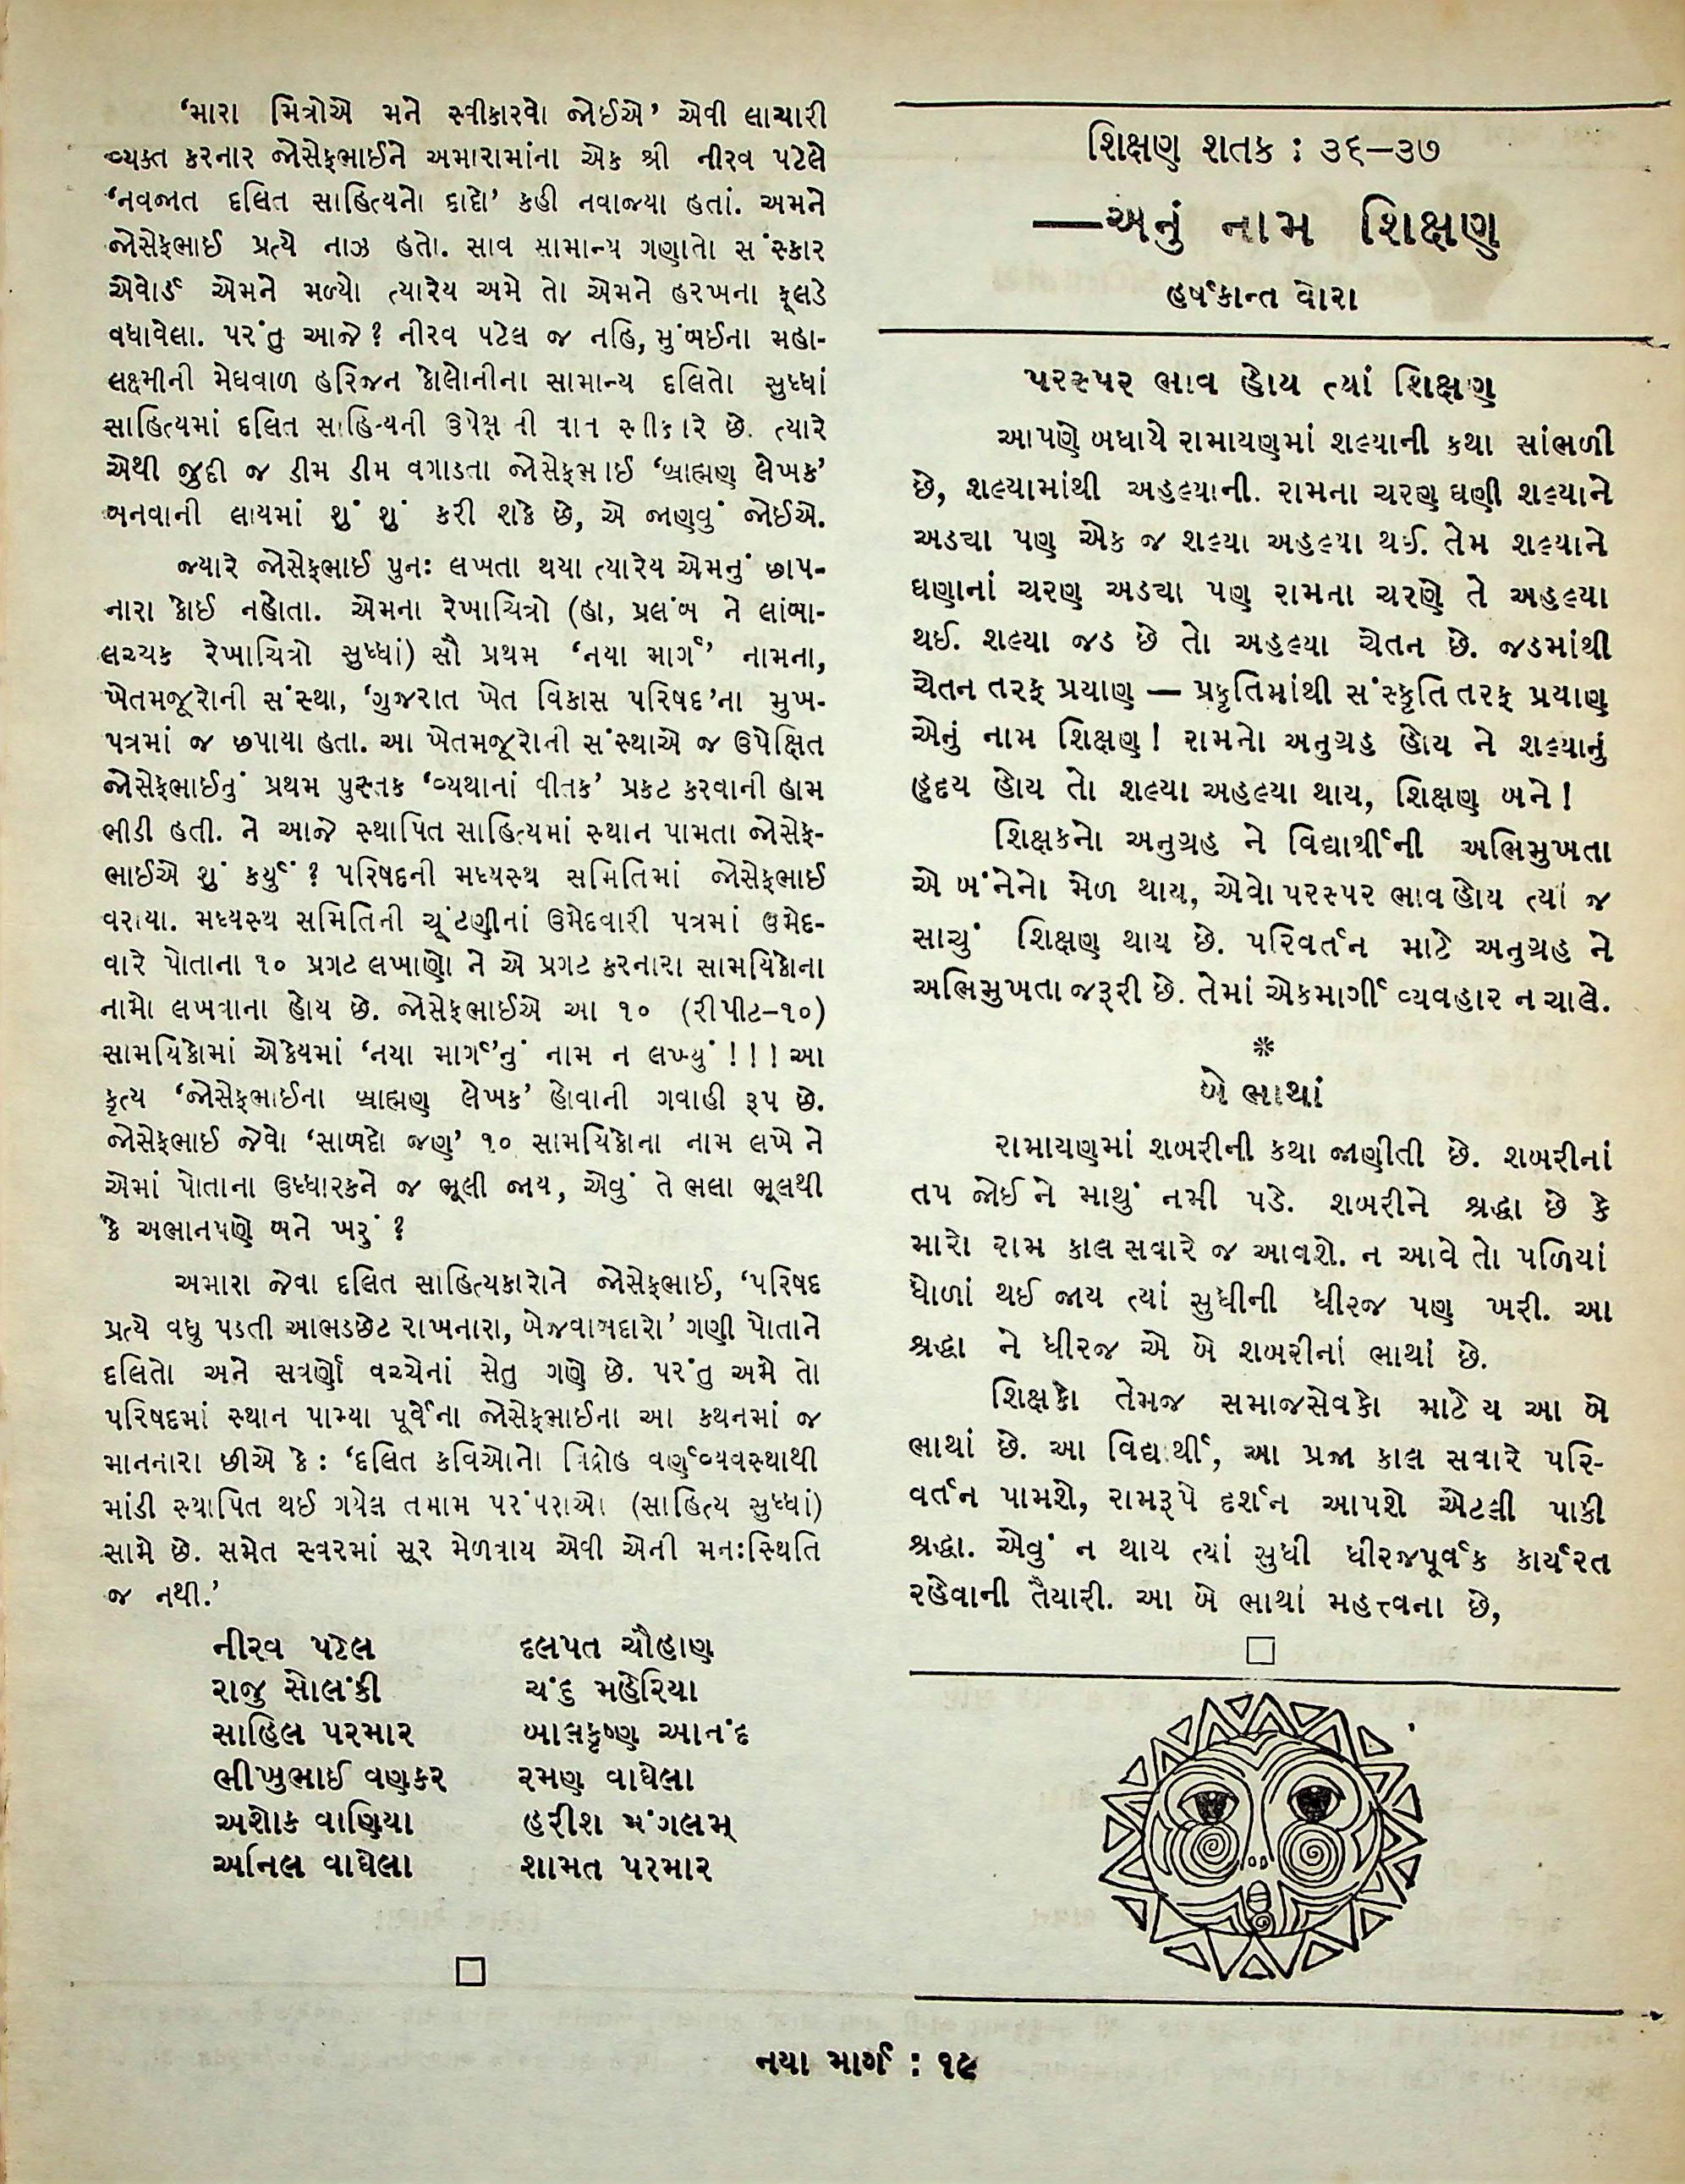 ‘મારા મિત્રોએ મને સ્વીકારવો જોઈએ’ એવી લાચારી
વ્યક્ત કરનાર જોસેફભાઈને અમારામાંના એક શ્રી નીરવ પટેલે
‘નવજાત દલિત સાહિત્યનો દાદો’ કહી નવાજ્યા હતાં. અમને
જોસેફભાઈ પ્રત્યે નાઝ હતો. સાવ સામાન્ય ગણાતો સંસ્કાર
એવોર્ડ એમને મળ્યો ત્યારેય અમે તો એમને હરખના ફૂલડે
વધાવેલા. પરંતુ આજે? નીરવ પટેલ જ નહિ, મુંબઈના મહા-
લક્ષ્મીની મેઘવાળ હરિજન કોલોનીના સામાન્ય દલિતો સુધ્ધાં
સાહિત્યમાં દલિત સાહિત્યની ઉપેક્ષાની વાત સ્વીકારે છે. ત્યારે
એથી જુદી જ ડીમ ડીમ વગાડતા જોસેફભાઈ ‘બ્રાહ્મણ લેખક’
બનવાની લાયમાં શું શું કરી શકે છે, એ જાણવું જોઈએ.
જ્યારે જોસેફભાઈ પુનઃ લખતા થયા ત્યારેય એમનું છાપ-
નારા કોઈ નહોતા. એમના રેખાચિત્રો (હા, પ્રલંબ ને લાંબા-
લચ્યક રેખાચિત્રો સુધ્ધાં) સૌ પ્રથમ ‘નયા માર્ગ’ નામના,
ખેતમજૂરોની સંસ્થા, ‘ગુજરાત ખેત વિકાસ પરિષદ’ના મુખ-
પત્રમાં જ છપાયા હતા. આ ખેતમજૂરોની સંસ્થાએ જ ઉપેક્ષિત
જોસેફભાઈનું પ્રથમ પુસ્તક ‘વ્યથાનાં વીતક’ પ્રકટ કરવાની હામ
ભીડી હતી. ને આજે સ્થાપિત સાહિત્યમાં સ્થાન પામતા જોસેફ-
ભાઈએ શું કર્યું? પરિષદની મધ્યસ્થ સમિતિમાં જોસેફભાઈ
વરાયા. મધ્યસ્થ સમિતિની ચૂંટણીનાં ઉમેદવારી પત્રમાં ઉમેદ-
વારે પોતાના ૧૦ પ્રગટ લખાણો ને એ પ્રગટ કરનારા સામયિકોના
નામો લખવાના હોય છે. જોસેફભાઈએ આ ૧૦ (રીપીટ-૧૦)
સામયિકોમાં એકેયમાં ‘નયા માર્ગ’નું નામ ન લખ્યું!!! આ
કૃત્ય ‘જોસેફભાઈના બ્રાહ્મણ લેખક’ હોવાની ગવાહી રૂપ છે.
જોસેફભાઈ જેવો ‘સાબદો જણ’ ૧૦ સામયિકોના નામ લખે ને
એમાં પોતાના ઉધ્ધારકને જ ભૂલી જાય, એવું તે ભલા ભૂલથી
કે અભાનપણે બને ખરું?
અમારા જેવા દલિત સાહિત્યકારોને જોસેફભાઈ, ‘પરિષદ
પ્રત્યે વધુ પડતી આભડછેટ રાખનારા, બેજવાબદારો’ ગણી પોતાને
દલિતો અને સવર્ણો વચ્ચેનાં સેતુ ગણે છે. પરંતુ અમે તો
પરિષદમાં સ્થાન પામ્યા પૂર્વેના જોસેફભાઈના આ કથનમાં જ
માનનારા છીએ કે : ‘દલિત કવિઓનો વિદ્રોહ વર્ણવ્યવસ્થાથી
માંડી સ્થાપિત થઈ ગયેલ તમામ પરંપરાઓ (સાહિત્ય સુધ્ધાં)
સામે છે. સમેત સ્વરમાં સૂર મેળવાય એવી એની મનઃસ્થિતિ
જ નથી.’
નીરવ પટેલ
દલપત ચૌહાણ
રાજુ સોલંકી
ચંદુ મહેરિયા
સાહિલ પરમાર
બાલકૃષ્ણ આનંદ
ભીખુભાઈ વણકર
રમણ વાઘેલા
અશોક વાણિયા
હરીશ મંગલમ્
અનિલ વાઘેલા
શામત પરમાર
શિક્ષણ શતક : ૩૬–૩૭
—અનું નામ શિક્ષણ
હર્ષકાન્ત વોરા
પરસ્પર ભાવ હોય ત્યાં શિક્ષણ
આપણે બધાયે રામાયણમાં શલ્યાની કથા સાંભળી
છે, શલ્યામાંથી અહલ્યાની. રામના ચરણ ઘણી શલ્યાને
અડયા પણ એક જ શલ્યા અહલ્યા થઈ. તેમ શલ્યાને
ઘણાનાં ચરણ અડયા પણ રામના ચરણે તે અહલ્યા
થઈ. શલ્યા જડ છે તો અહલ્યા ચેતન છે. જડમાંથી
ચેતન તરફ પ્રયાણ — પ્રકૃતિમાંથી સંસ્કૃતિ તરફ પ્રયાણ
એનું નામ શિક્ષણ! રામનો અનુગ્રહ હોય ને શલ્યાનું
હૃદય હોય તો શલ્યા અહલ્યા થાય, શિક્ષણ બને!
શિક્ષકનો અનુગ્રહ ને વિદ્યાર્થીની અભિમુખતા
એ બંનેનો મેળ થાય, એવો પરસ્પર ભાવ હોય ત્યાં જ
સાચું શિક્ષણ થાય છે. પરિવર્તન માટે અનુગ્રહ ને
અભિમુખતા જરૂરી છે. તેમાં એકમાર્ગી વ્યવહાર ન ચાલે.
❊
બે ભાથાં
રામાયણમાં શબરીની કથા જાણીતી છે. શબરીનાં
તપ જોઈને માથું નમી પડે. શબરીને શ્રદ્ધા છે કે
મારો રામ કાલ સવારે જ આવશે. ન આવે તો પળિયાં
ધોળાં થઈ જાય ત્યાં સુધીની ધીરજ પણ ખરી. આ
શ્રદ્ધા ને ધીરજ એ બે શબરીનાં ભાથાં છે.
શિક્ષકો તેમજ સમાજસેવકો માટેય આ બે
ભાથાં છે. આ વિદ્યાર્થી, આ પ્રજા કાલ સવારે પરિ-
વર્તન પામશે, રામરૂપે દર્શન આપશે એટલી પાકી
શ્રદ્ધા. એવું ન થાય ત્યાં સુધી ધીરજપૂર્વક કાર્યરત
રહેવાની તૈયારી. આ બે ભાથાં મહત્ત્વના છે,
નયા માર્ગ : ૧૯